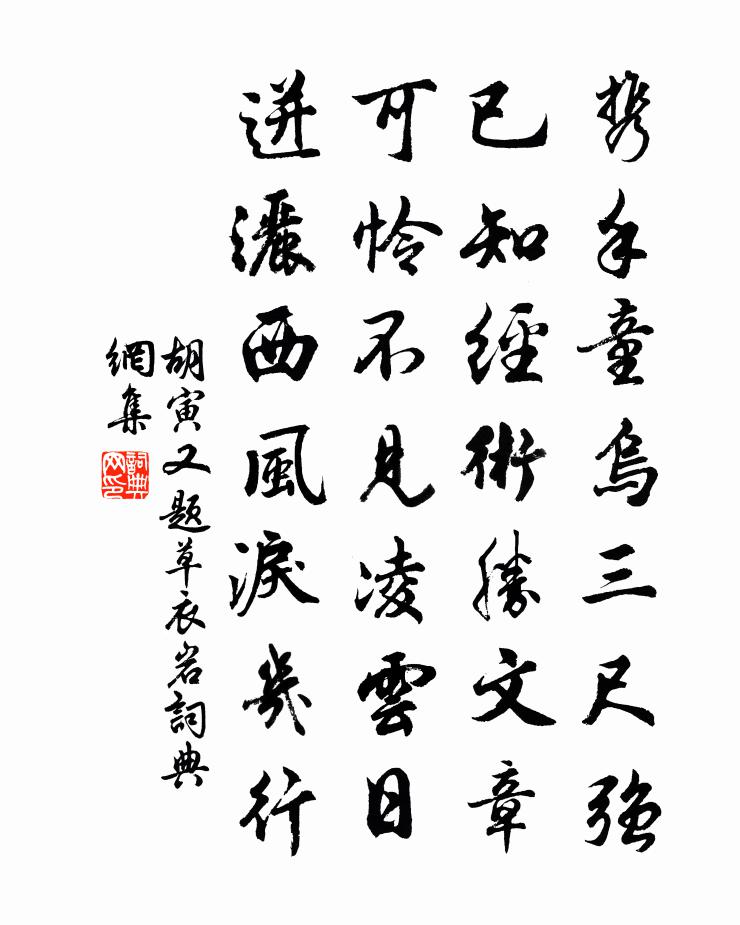 携手童烏三尺強
已知經術勝文章
可怜不見凌雲日
迸灑西風淚幾行
胡寅又題草衣岩詞典
網集
詞典网印